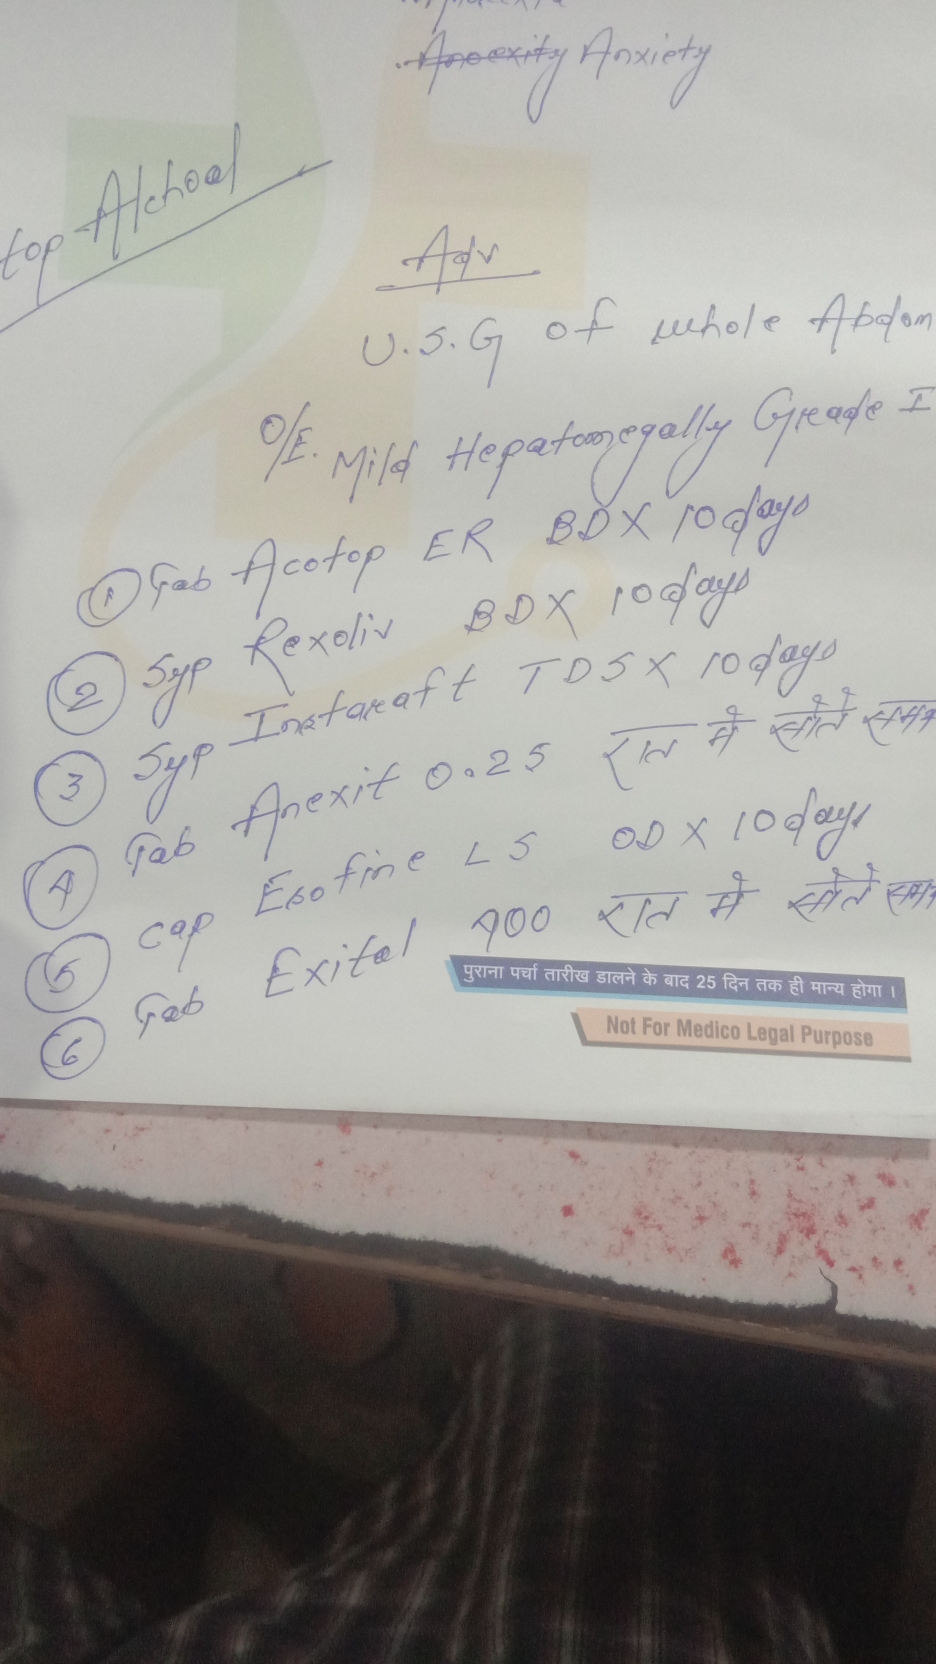 Anoexity Anxiety
top Alchoal
Adv
U.S.G of whole Abdom
O/E. Mild Hepatomegally Grade I
① Tab Acotop ER BD X 10 days
② Syp Rexoliv BD X 10 days
③ Syp Instaraft TDS X 10 days
④ Tab Anexit 0.25 रात मे सोते समय
⑤ cap Esofine LS OD X 10 days
⑥ Tab Exitel 400 रात मे सोते समय
पुराना पर्चा तारीख डालने के बाद 25 दिन तक ही मान्य होगा ।
Not For Medico Legal Purpose